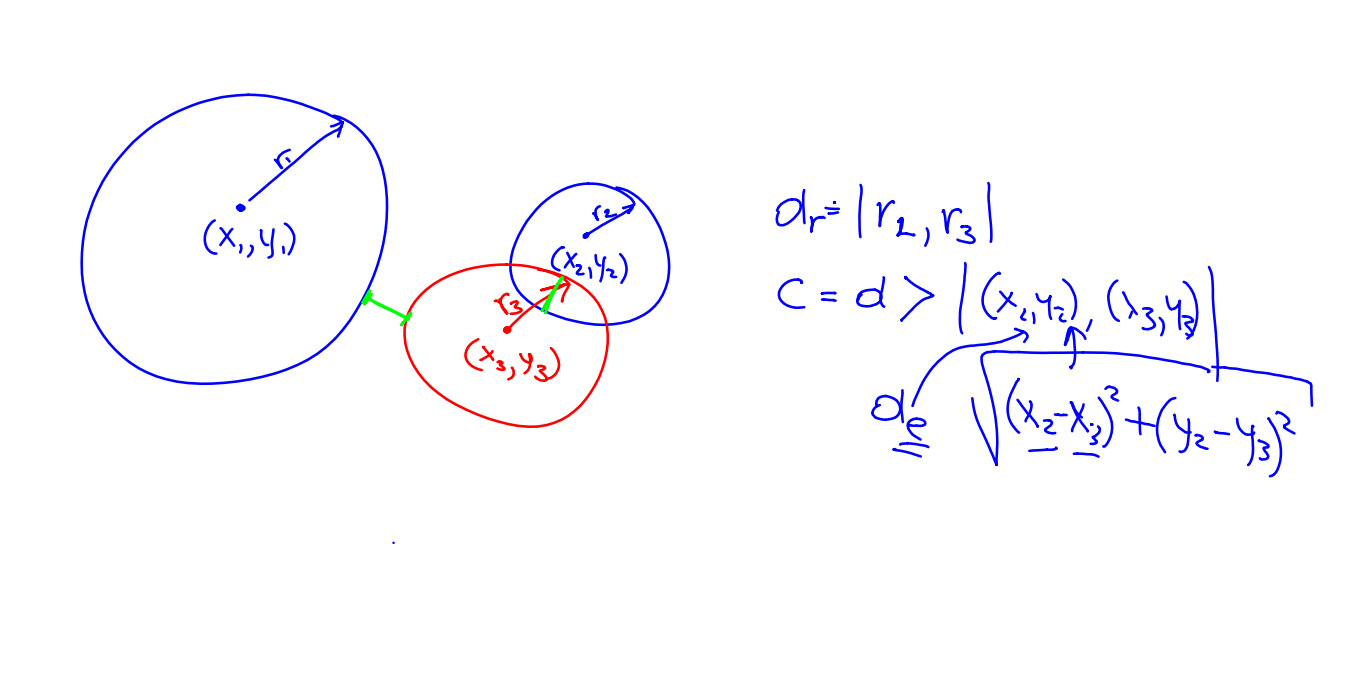 r₁
(x₁,y₁)
r₂
(x₂,y₂)
r₃
(x₃,y₃)
dᵣ=|r₂,r₃|
C = d > |(x₂,y₂),(x₃,y₃)|
dₑ √(x₂-x₃)²+(y₂-y₃)²